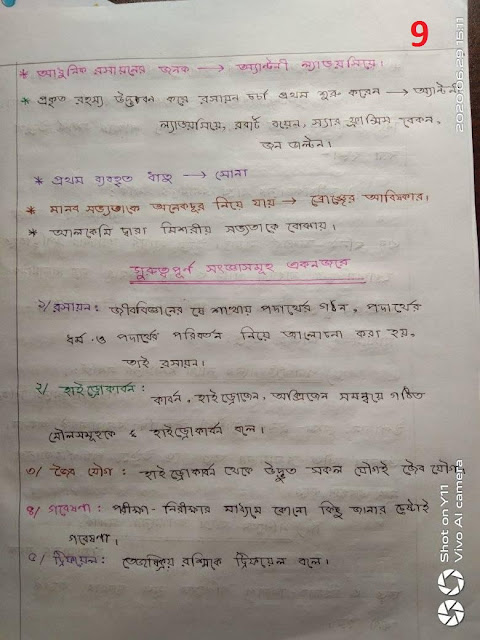 9
* আধুনিক রসায়নের জনক → অ্যান্টনী ল্যাভয়সিয়ে।
* প্রকৃত রহস্য উদ্ভাবন করে রসায়ন চর্চা প্রথম শুরু করেন → অ্যান্টনী
ল্যাভয়সিয়ে, রবার্ট বয়েল, স্যার ফ্রান্সিস বেকন,
জন ডাল্টন।
* প্রথম ব্যবহৃত ধাতু → সোনা
* মানব সভ্যতাকে অনেকদূর নিয়ে যায় → ব্রোঞ্জের আবিষ্কার।
* আলকেমি দ্বারা মিশরীয় সভ্যতাকে বোঝায়।
গুরুত্বপূর্ণ সংজ্ঞাসমূহ একনজরে
১/ রসায়ন: জীববিজ্ঞানের যে শাখায় পদার্থের গঠন, পদার্থের
ধর্ম ও পদার্থের পরিবর্তন নিয়ে আলোচনা করা হয়,
তাই রসায়ন।
২/ হাইড্রোকার্বন:
কার্বন, হাইড্রোজেন, অক্সিজেন সমন্বয়ে গঠিত
যৌগসমূহকে হাইড্রোকার্বন বলে।
৩/ জৈব যৌগ: হাইড্রোকার্বন থেকে উদ্ভূত সকল যৌগই জৈব যৌগ
৪/ গবেষণা: পরীক্ষা-নিরীক্ষার মাধ্যমে কোনো কিছু জানার চেষ্টাই
গবেষণা।
৫/ ট্রিফয়েল: তেজস্ক্রিয় রশ্মিকে ট্রিফয়েল বলে।
2020/06/29 15:11
Shot on Y11
Vivo AI camera